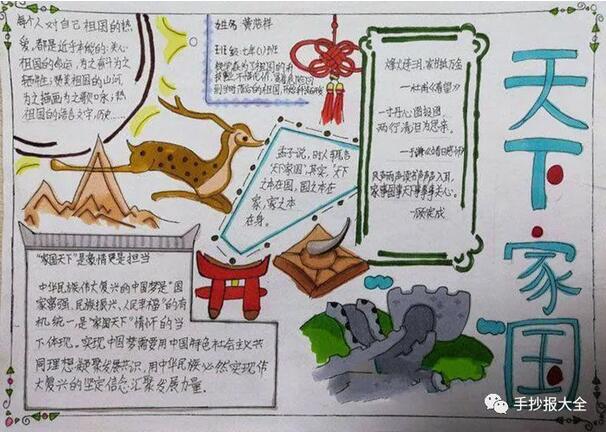 每个人对自己祖国的热
爱,都是近乎本能的:关心
祖国的命运,为之奋斗为之
牺牲;赞美祖国的山河,
为之描画为之歌咏;热
祖国的语言文字,历史……
姓名
班级:七年(1)班
烽火连三月,家书抵万金
——杜甫《春望》
一寸丹心图报国,
两行清泪为思亲。
风声雨声读书声声声入耳,
家事国事天下事事事关心。
——顾宪成
孟子说,时人有言
“天下家国”,其实,“天下
之本在国,国之本在
家,家之本
在身。
天下·家国
“家国天下”是豪情更是担当
中华民族伟大复兴的中国梦是“国
家富强、民族振兴、人民幸福”的有
机统一,是“家国天下”情怀的当
下体现。实现中国梦需要用中国特色社会主义共
同理想凝聚发展共识,用中华民族必然实现伟
大复兴的坚定信念汇聚发展力量。
手抄报大全